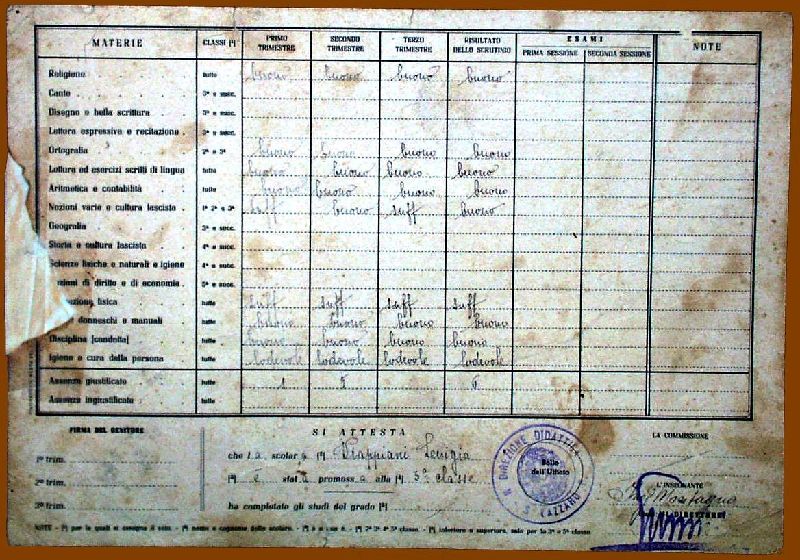 MATERIE CLASSI [*] PRIMO TRIMESTRE SECONDO TRIMESTRE TERZO TRIMESTRE RISULTATO DELLO SCRUTINIO ESAMI PRIMA SESSIONE SECONDA SESSIONE NOTE
Religione tutte buono buono buono buono
Canto 3ª e succ.
Disegno e bella scrittura 3ª e succ.
Lettura espressiva e recitazione 3ª e succ.
Ortografia 2ª e 3ª buono buono buono buono
Lettura ed esercizi scritti di lingua tutte buono buono buono buono
Aritmetica e contabilità tutte buono buono buono buono
Nozioni varie e cultura fascista 1ª 2ª e 3ª suff buono suff buono
Geografia 3ª e succ.
Storia e cultura fascista 4ª e succ.
Scienze fisiche e naturali e igiene 4ª e succ.
di diritto e di economia 5ª e succ.
fisica tutte suff suff suff suff
donneschi e manuali tutte buono buono buono buono
Disciplina [condotta] tutte buono buono buono buono
Igiene e cura della persona tutte lodevole lodevole lodevole lodevole
Assenze giustificate tutte 1 5
Assenze ingiustificate tutte
FIRMA DEL GENITORE
1º trim.
2º trim.
3º trim.
SI ATTESTA
che l a scolar a
è stat a promoss a alla classe
ha completato gli studi del grado
R. DIREZIONE DIDATTICA S. LAZZARO
Bollo dell'Ufficio
LA COMMISSIONE
L'INSEGNANTE
IL DIRETTORE